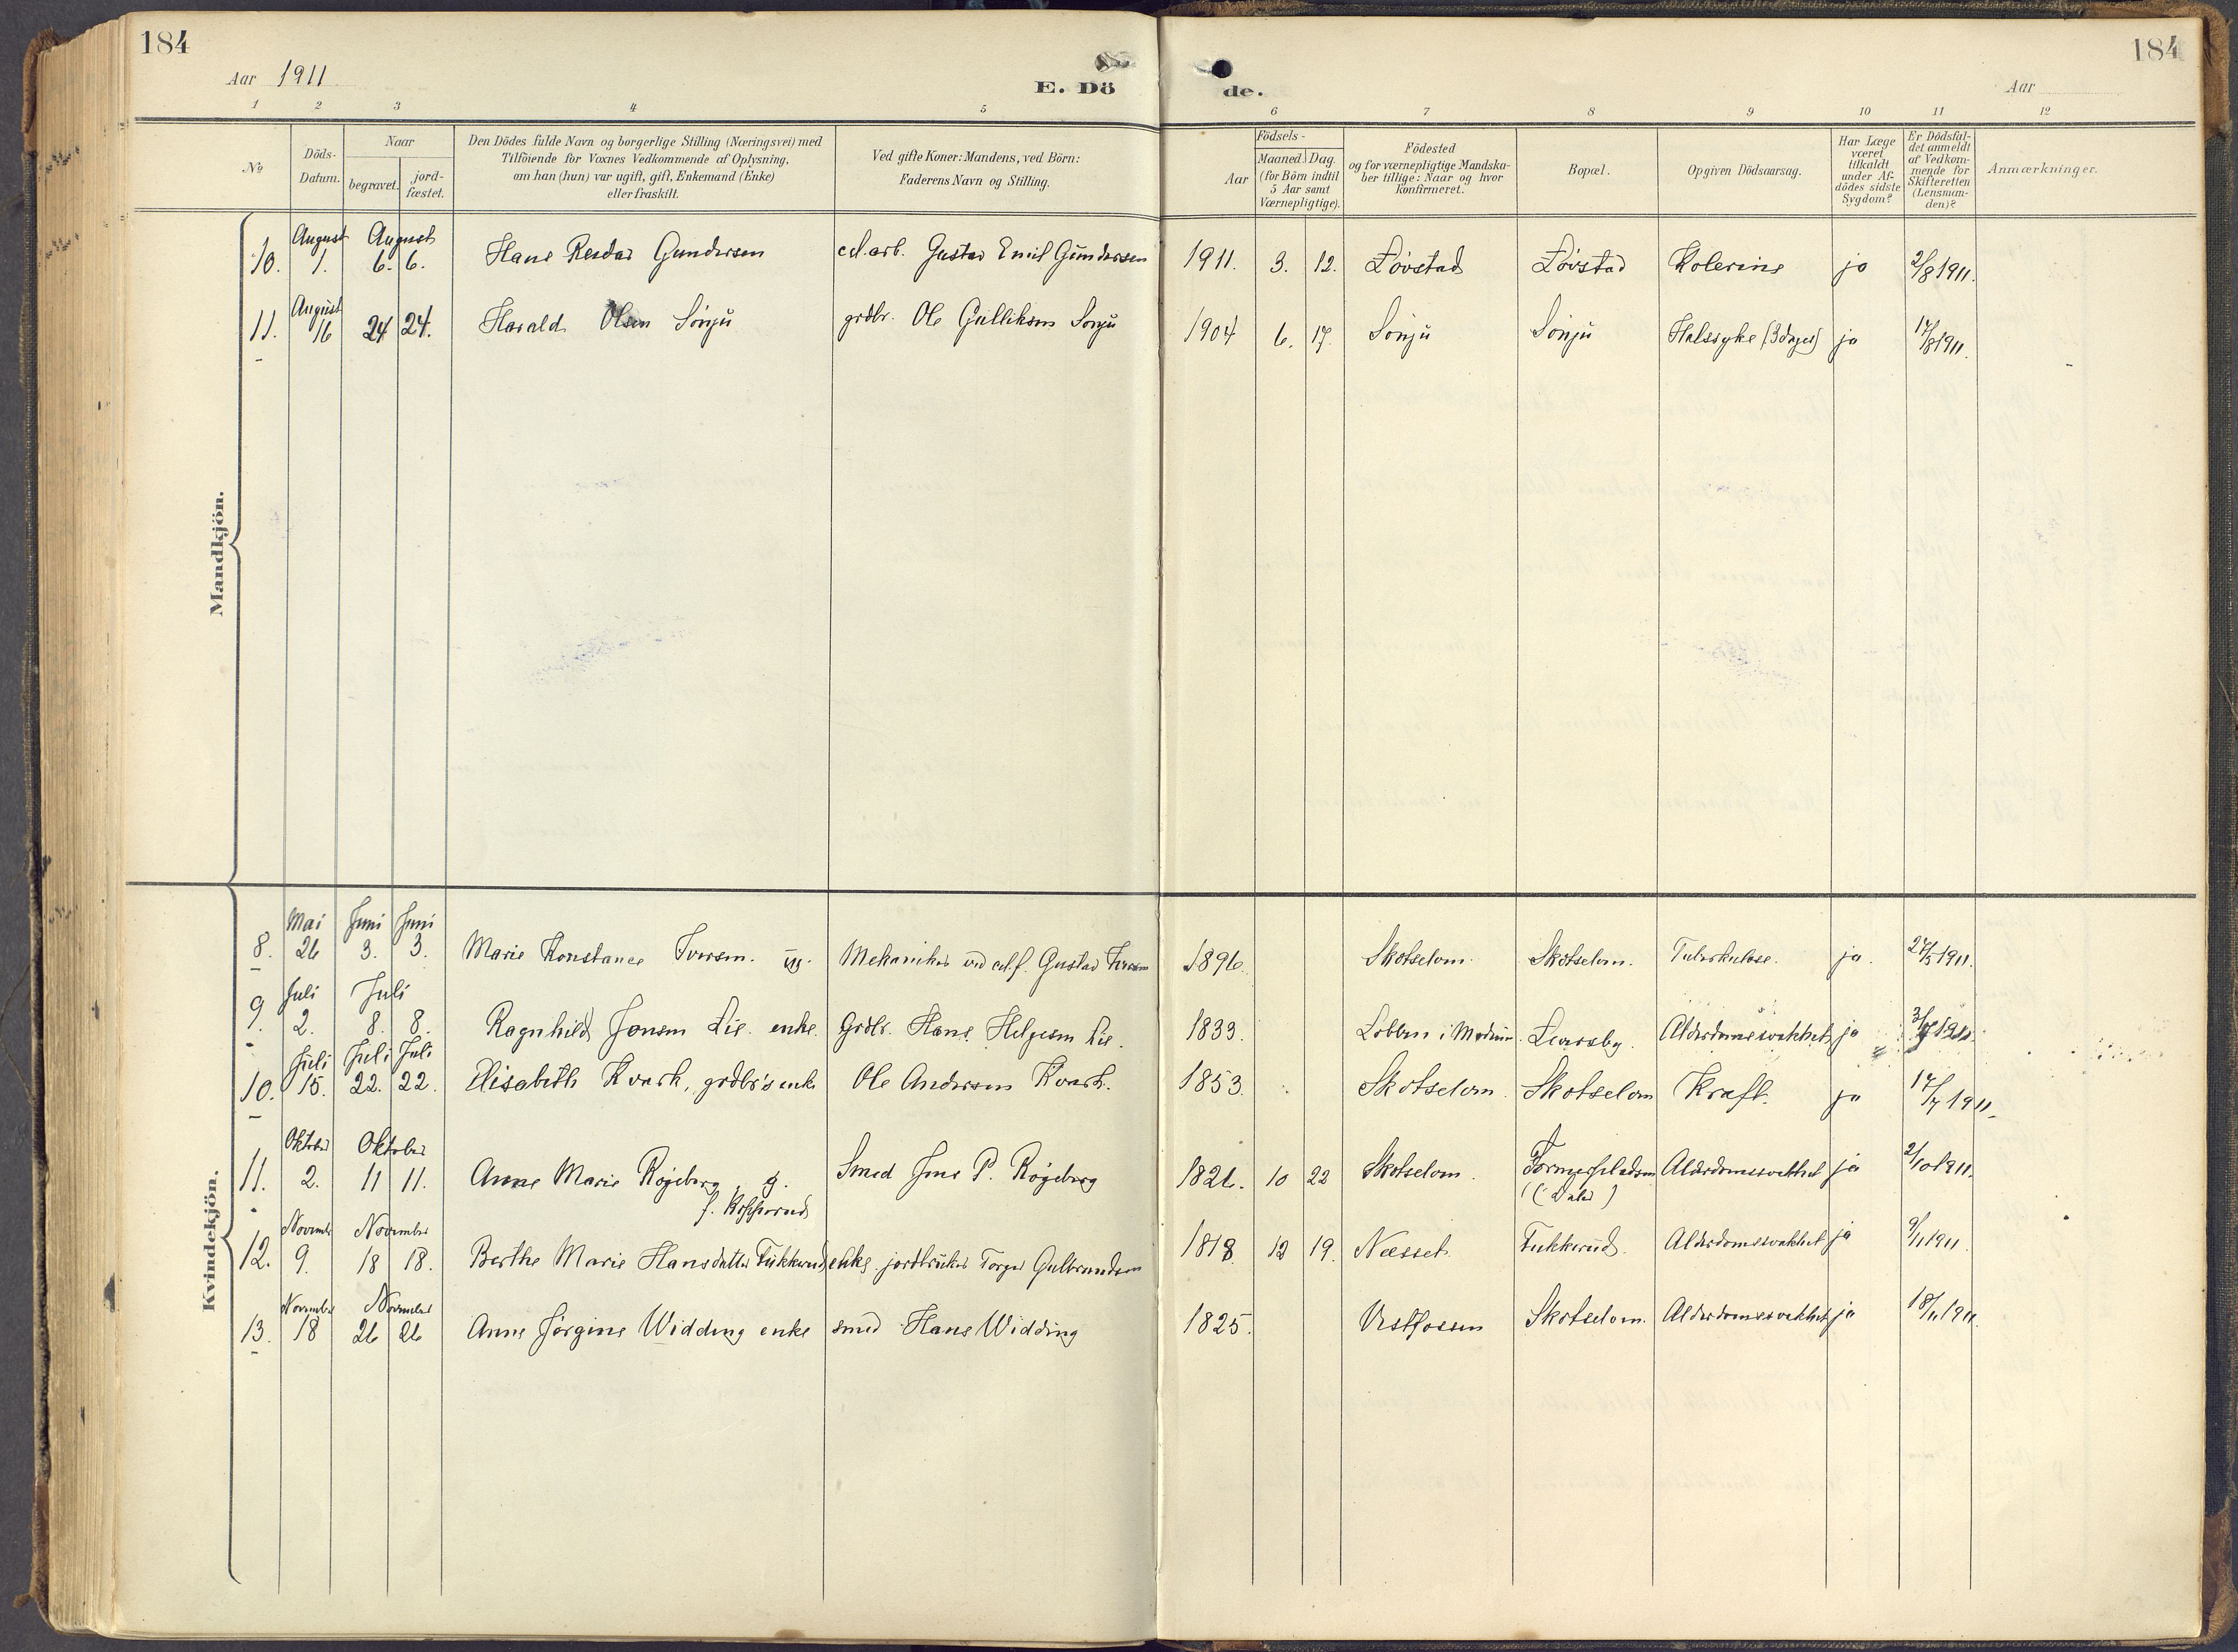 184
184
Aar 1911
E. Dö
de.
Aar
1 2 3 4 5 6 7 8 9 10 11 12
No
Döds-Datum.
Naar
begravet.
jord-fæstet.
Den Dödes fulde Navn og borgerlige Stilling (Næringsvei) med
Tilföiende for Voxnes Vedkommende af Oplysning,
om han (hun) var ugift, gift, Enkemand (Enke)
eller fraskilt.
Ved gifte Koner: Mandens, ved Börn:
Faderens Navn og Stilling.
Födsels-
Aar
Maaned. Dag.
(for Börn indtil
5 Aar samt
Værnepligtige).
Födested
og for værnepligtige Mandska-
ber tillige: Naar og hvor
Konfirmeret.
Bopæl.
Opgiven Dödsaarsag.
Har Læge
været
tilkaldt
under Af-
dödes sidste
Sygdom?
Er Dödsfal-
det anmeldt
af Vedkom-
mende for
Skifteretten
(Lensman-
den)?
Anmærkninger.
Mandkjön.
August August
10. 1. 6. 6. Hans Reidar Gundersen cel.arb. Gustav Emil Gundersen 1911. 3. 12. Lövstad Lövstad Kolerine ja 2/8 1911.
August
11. 16 24 24. Harald Olsen Sönju grdbr. Ole Gulliksen Sonju 1904 6. 17. Sönju Sönju Halssyke (3 dages) ja 17/8 1911.
Kvindekjön.
Mai Juni Juni
8. 26 3. 3. Marie Konstance Iversen. ug. Mekaniker ved cel.f. Gustav Iversen 1896. Skotselven. Skotselven. Tuberkulose. ja. 27/5 1911.
Juli Juli
9. 2. 8. 8. Ragnhild Jonsen Lie. enke. Grdbr. Hans Helgesen Lie. 1833. i Modum. Alderdomssvakhet ja 3/7 1911.
Juli Juli Juli
10. 15. 22. 22. Elisabeth Kvark, grdbr's enke Ole Andersen Kvark. 1853. Skotselven. Skotselven Kræft. ja 17/7 1911.
Oktober Oktober
11. 2. 11 11. Anne Marie Røgeberg, g. Smed Jens P. Røgeberg 1826. 10 22 Skotselven. Alderdomssvakhet ja 2/10 1911.
f.
November November
12. 9. 18 18. Berthe Marie Hansdatter Fukkerud, enke. jordbruker Torger Gulbrandsen 1818 12 19. Næsset. Fukkerud. Alderdomssvakhet ja 9/11 1911.
November November
13. 18 26 26 Anne Jörgine Widding enke smed Hans Widding 1825. Vestfossen Skotselven. Alderdomssvakhet ja 18/11 1911.